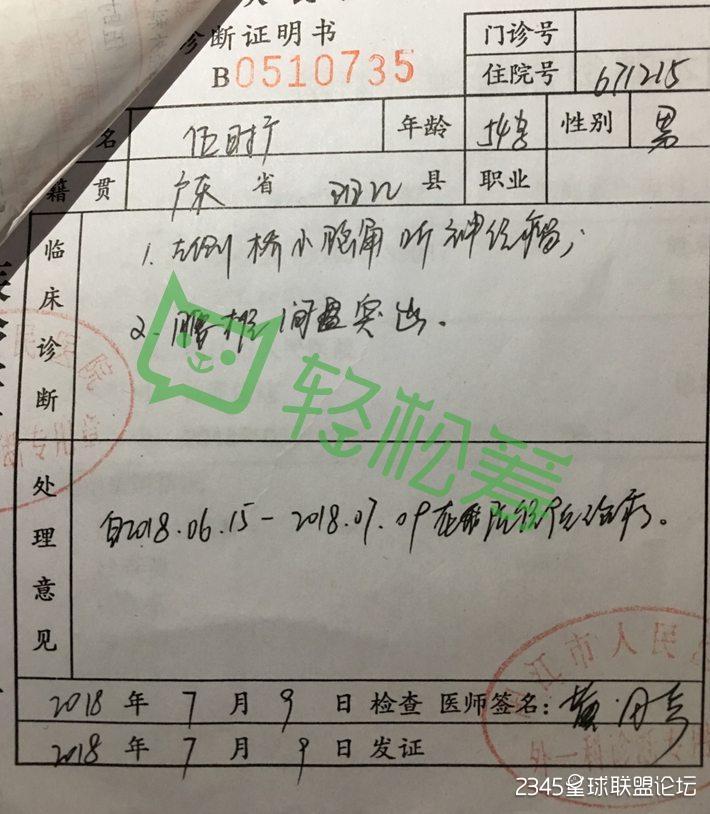 诊断证明书
门诊号
B0510735
住院号 671215
名 伍时 年龄 54岁 性别 男
籍贯 广东 省 县 职业
临床诊断
1. 左侧桥小脑角听神经瘤;
2. 腰椎间盘突出。
轻松筹
处理意见
自2018.06.15-2018.07.09在我院住院治疗。
2018 年 7 月 9 日 检查 医师签名: 黄
2018 年 7 月 9 日 发证
江市人民
外一科
2345星球联盟论坛